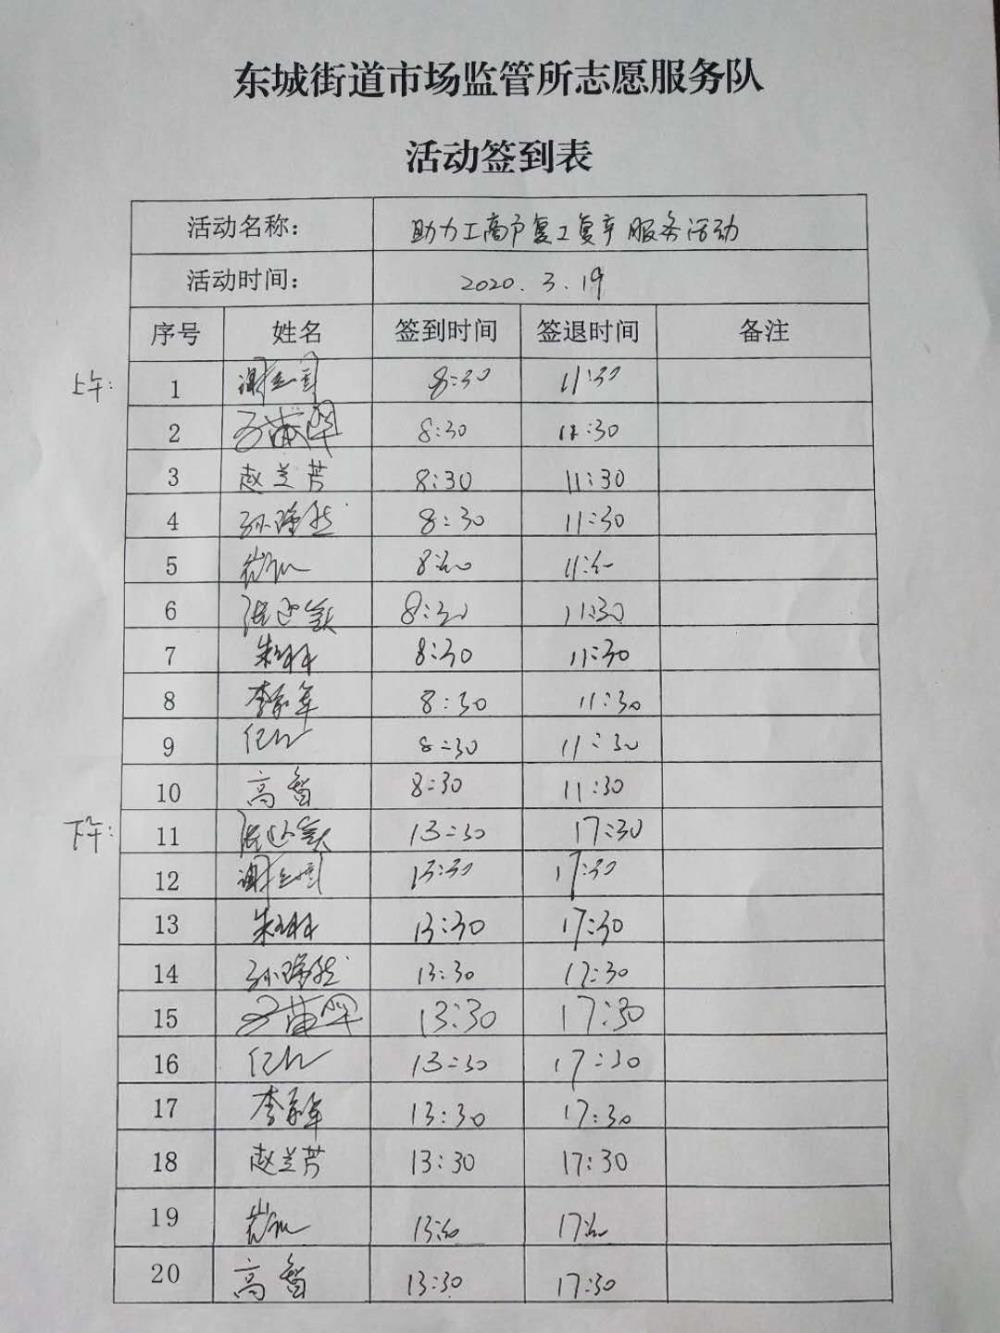 东城街道市场监管所志愿服务队
活动签到表
活动名称： 助力工商户复工复产服务活动
活动时间： 2020.3.19
序号 姓名 签到时间 签退时间 备注
上午：
1 8:30 11:30
2 8:30 11:30
3 赵兰芳 8:30 11:30
4 8:30 11:30
5 8:30 11:30
6 8:30 11:30
7 8:30 11:30
8 李家军 8:30 11:30
9 8:30 11:30
10 高智 8:30 11:30
下午：
11 13:30 17:30
12 13:30 17:30
13 13:30 17:30
14 13:30 17:30
15 13:30 17:30
16 13:30 17:30
17 李家军 13:30 17:30
18 赵兰芳 13:30 17:30
19 13:30 17:30
20 高智 13:30 17:30